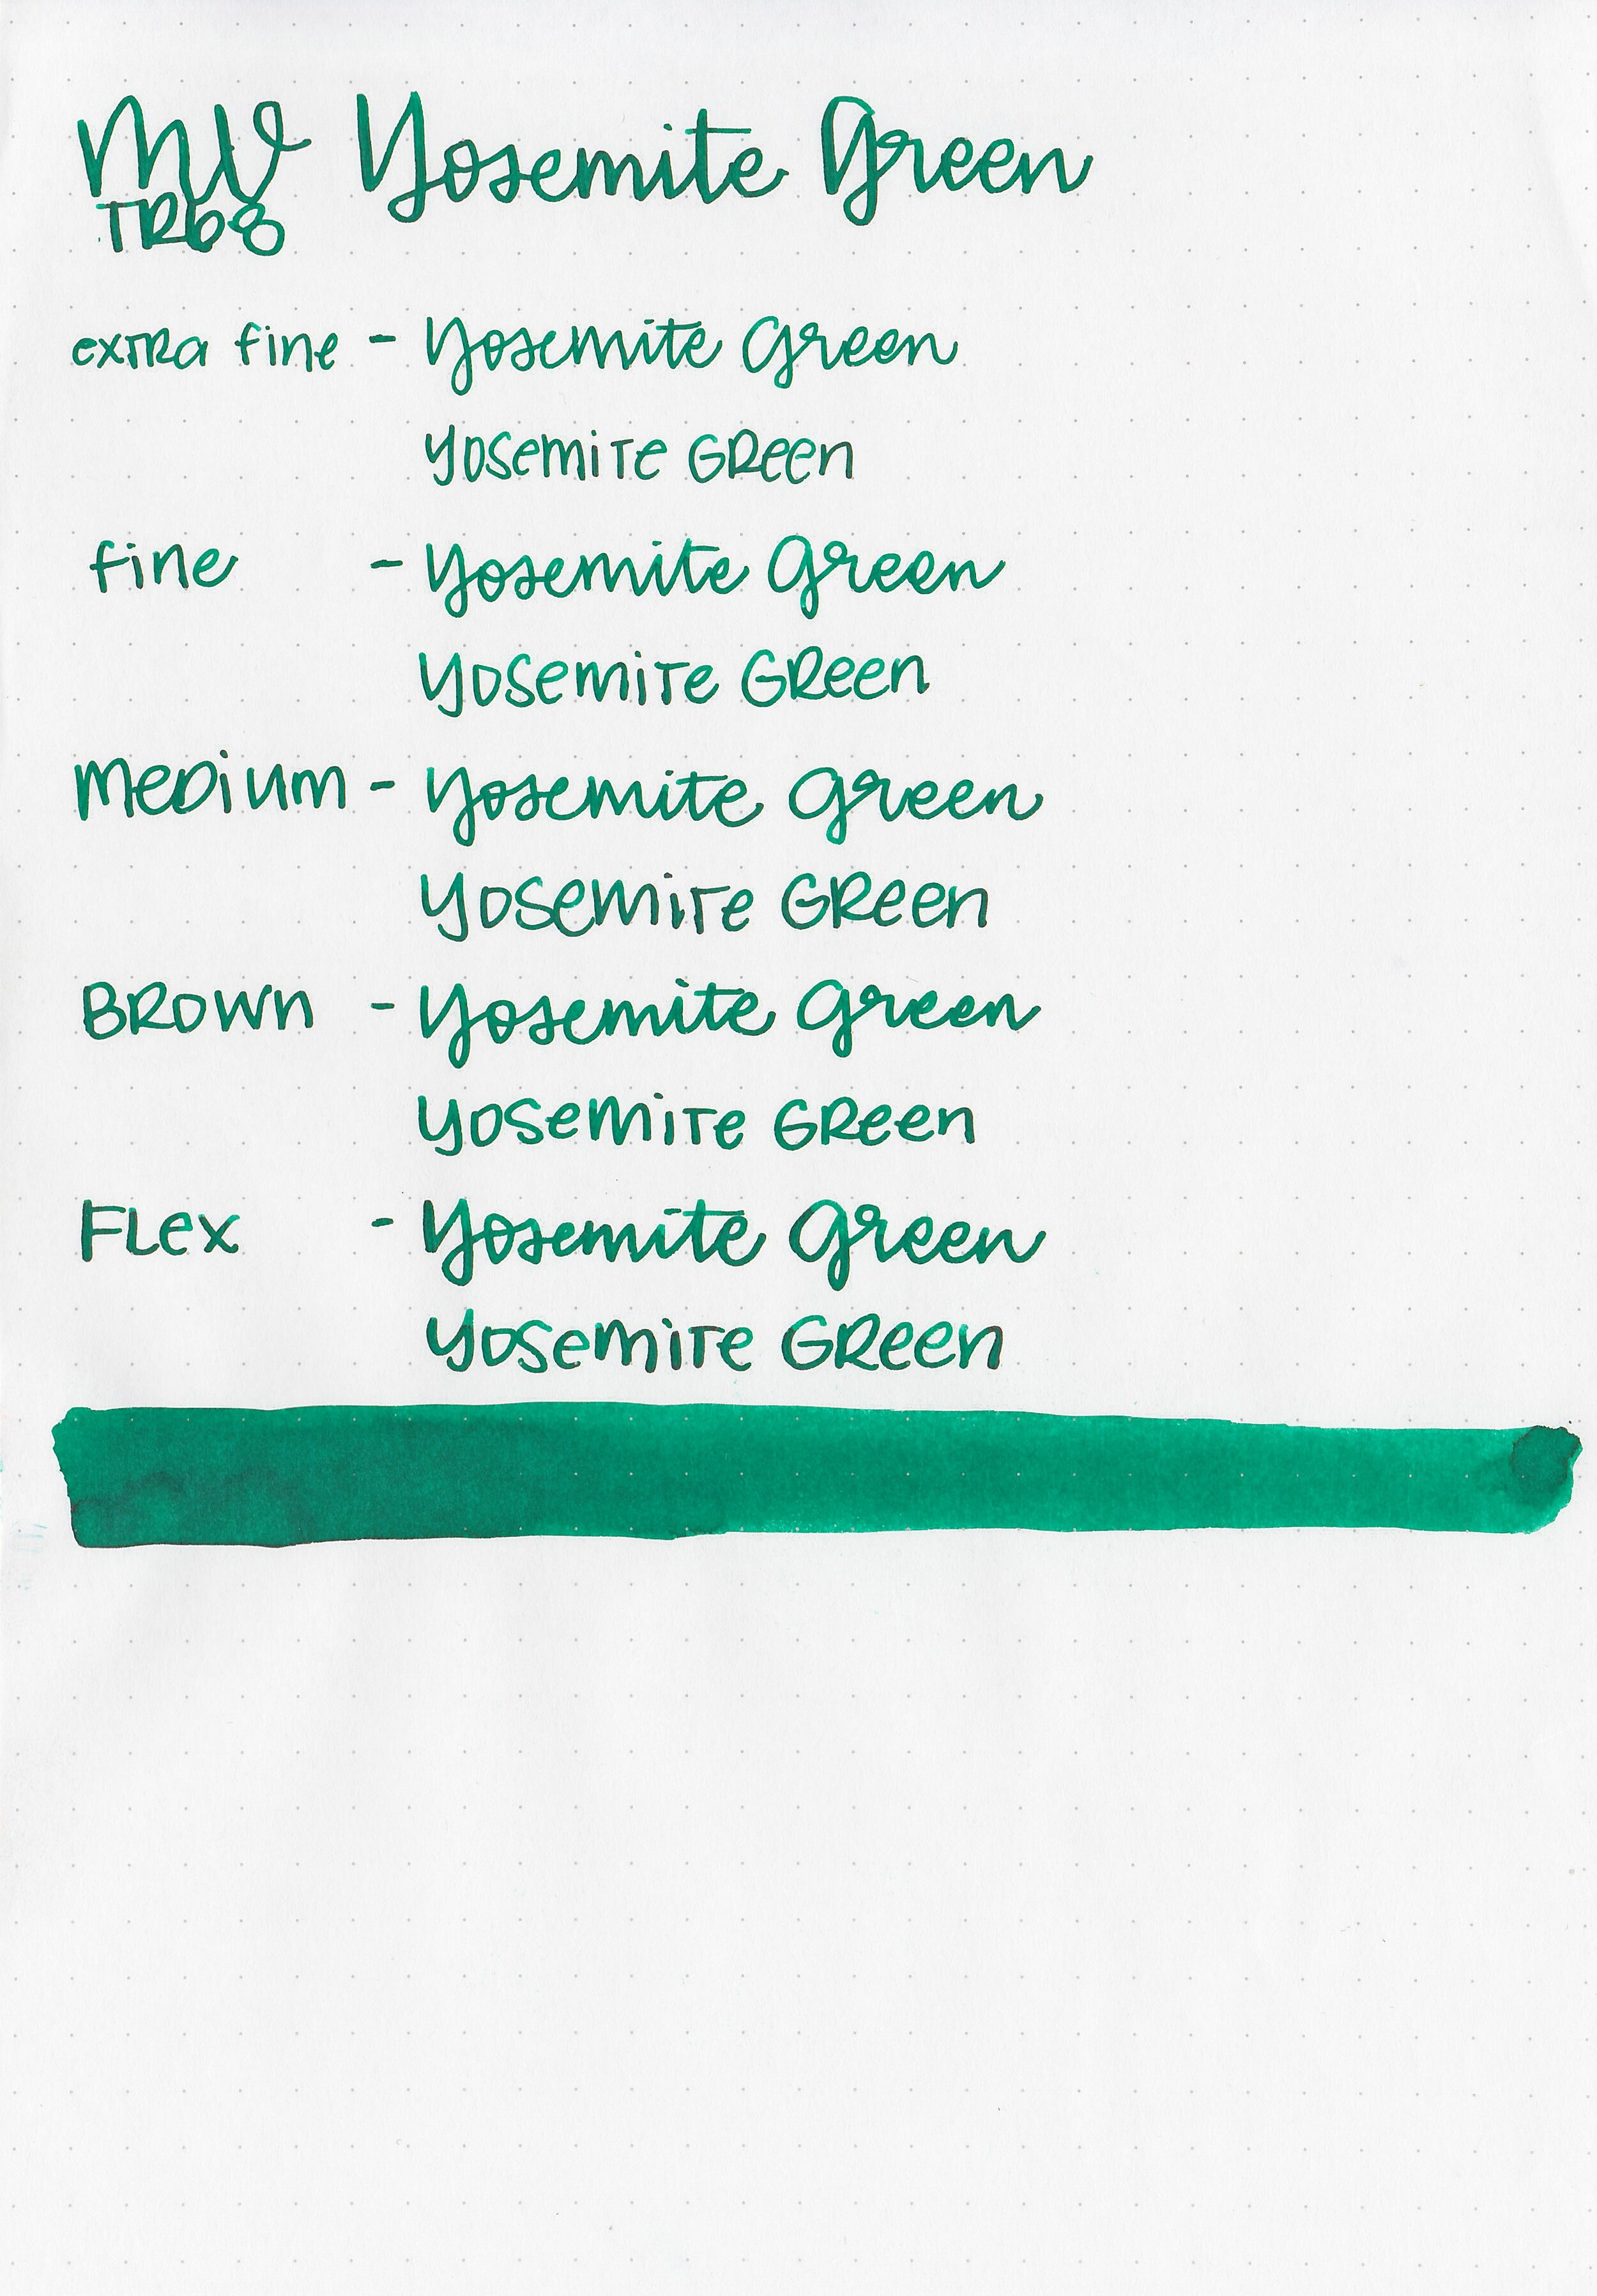 MV Yosemite Green
TR68
extra fine - Yosemite Green
Yosemite Green
fine - Yosemite Green
Yosemite Green
Medium - Yosemite Green
Yosemite Green
BROWN - Yosemite Green
Yosemite Green
FLex - Yosemite Green
Yosemite Green